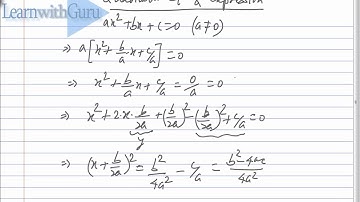 LearnwithGuru
a expression
ax² + bx + c = 0 (a ≠ 0)
⇒ a[x² + b/a x + c/a] = 0
⇒ x² + b/a x + c/a = 0/a = 0
⇒ x² + 2·x·b/2a + (b/2a)² - (b/2a)² + c/a = 0
y
⇒ (x + b/2a)² = b²/4a² - c/a = b² - 4ac/4a²